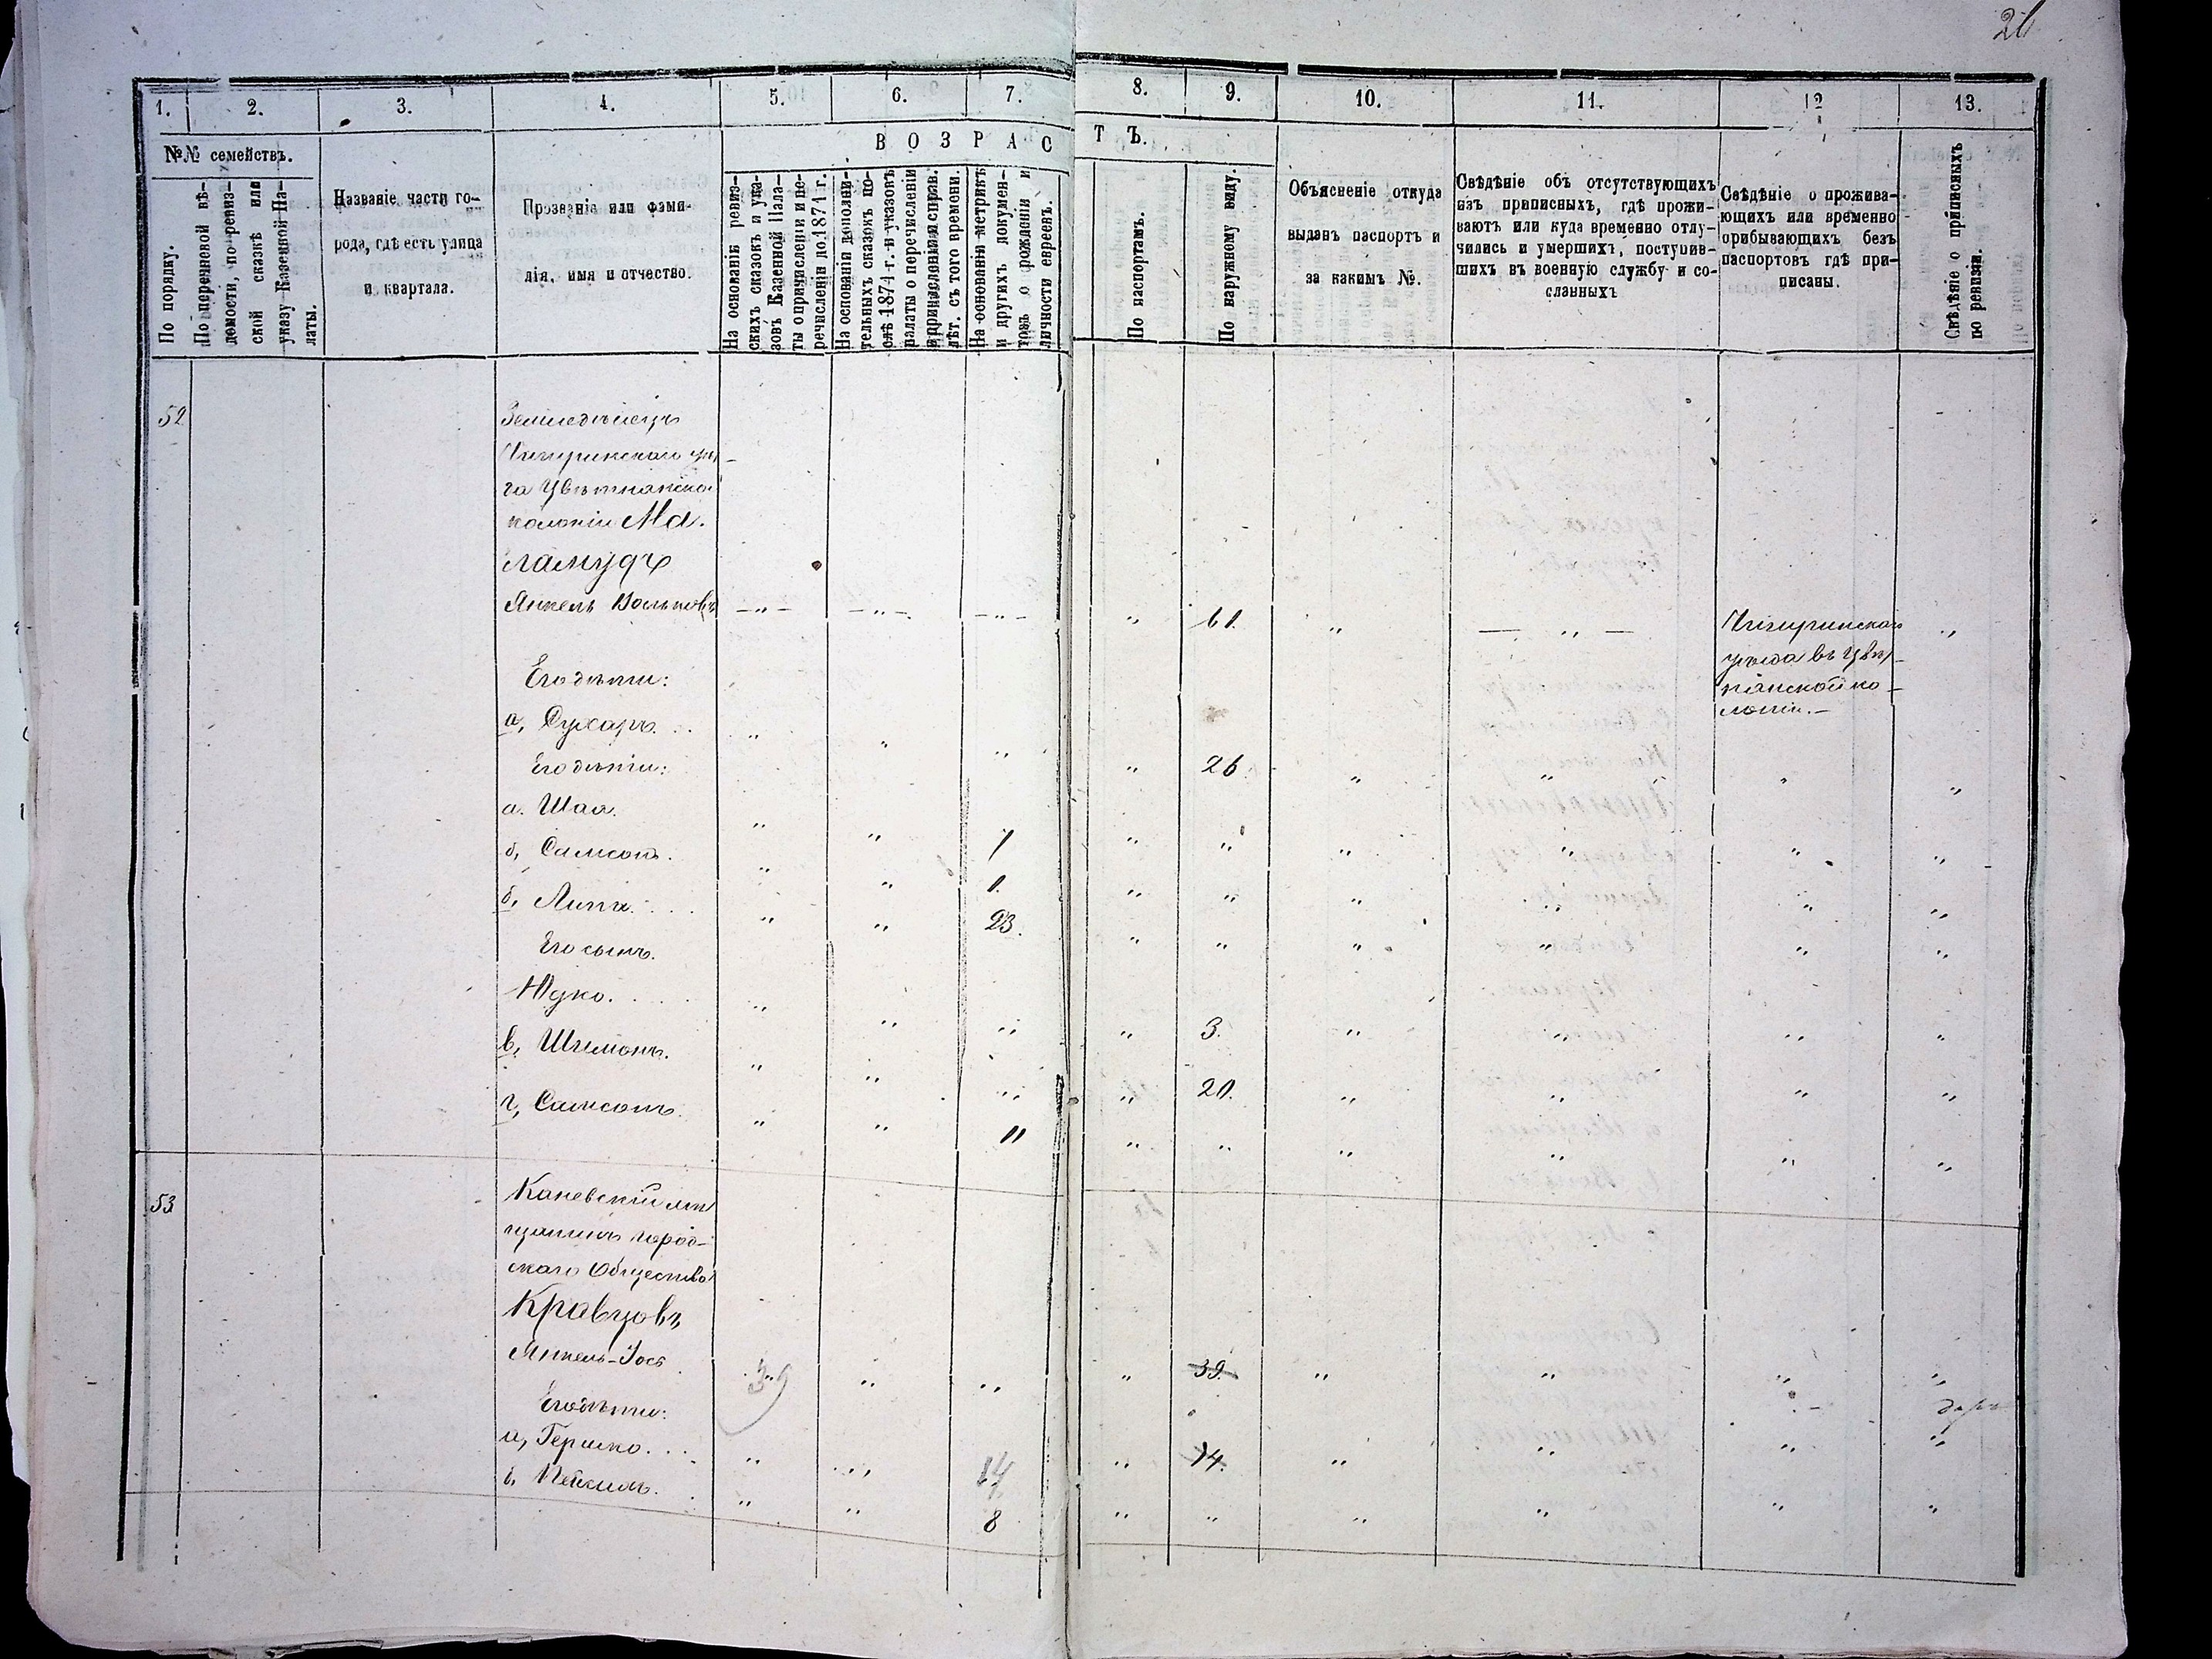 26
1. 2. 3. 4. 5. 6. 7. 8. 9. 10. 11. 12 13.
№№ семействъ.
ВОЗРАСТЪ.
По порядку.
По перечневой вѣ-
домости, по ревиз-
ской сказкѣ или
указу Казенной Па-
латы.
Названіе части го-
рода, гдѣ есть улица
и квартала.
Прозваніе или фами-
лія, имя и отчество.
На основаніи ревиз-
скихъ сказокъ и ука-
зовъ Казенной Пала-
ты о причисленіи и пе-
речисленіи до 1874 г.
На основаніи дополни-
тельныхъ сказокъ по-
слѣ 1874 г. и указовъ
палаты о перечисленіи
и причисленіи и справ.
лѣт. съ того времени.
На основаніи метрикъ
и другихъ докумен-
товъ о рожденіи и
личности евреевъ.
По паспортамъ.
По наружному виду.
Объясненіе откуда
выданъ паспортъ и
за какимъ №.
Свѣдѣніе объ отсутствующихъ
изъ приписныхъ, гдѣ прожи-
ваютъ или куда временно отлу-
чились и умершихъ, поступив-
шихъ въ военную службу и со-
сланныхъ
Свѣдѣніе о прожива-
ющихъ или временно
прибывающихъ безъ
паспортовъ гдѣ при-
писаны.
Свѣдѣніе о приписныхъ
по ревизіи.
52
Земледѣлецъ
Чигиринскаго уѣз-
да Цвѣтнянской
колоніи Ма-
ламудъ
Янкель Вольковъ -„- -„- -„- „ 61. „ — „ — Чигиринскаго „
уѣзда въ Цвѣт-
нянской ко-
лоніи.-
Его дѣти:
а, Сухаръ... „ „ „ „ 26. „ „ „ „
Его дѣти:
а. Шая. „ „ 7 „ „ „ „ „ „
б, Самсонъ. „ „ 1. „ „ „ „ „ „
б, Липа.... „ „ 23. „ „ „ „ „ „
Его сынъ.
Юдко.... „ „ „ „ 3. „ „ „ „
в, Шлемонъ. „ „ „ „ 20. „ „ „ „
г, Самсонъ. „ „ 11 „ „ „ „ „ „
53
Каневскій мѣ-
щанинъ город-
скаго Общества
Кравцовъ
Янкель-Іось 39 „ „ „ 39. „ „ „ „
Его дѣти:
а, Гершко... „ „ 14 „ 14. „ „ „ „
б, Пейсихъ. „ „ 8 „ „ „ „ „ „